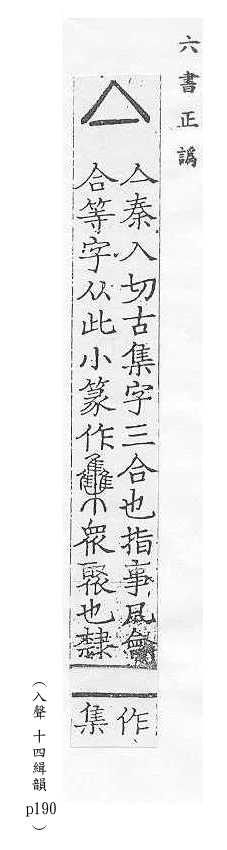 六書正譌
亼
亼秦入切古集字三合也指事凡會
合等字从此小篆作雧衆聚也隸
作
集
（入聲 十四緝韻 p190）